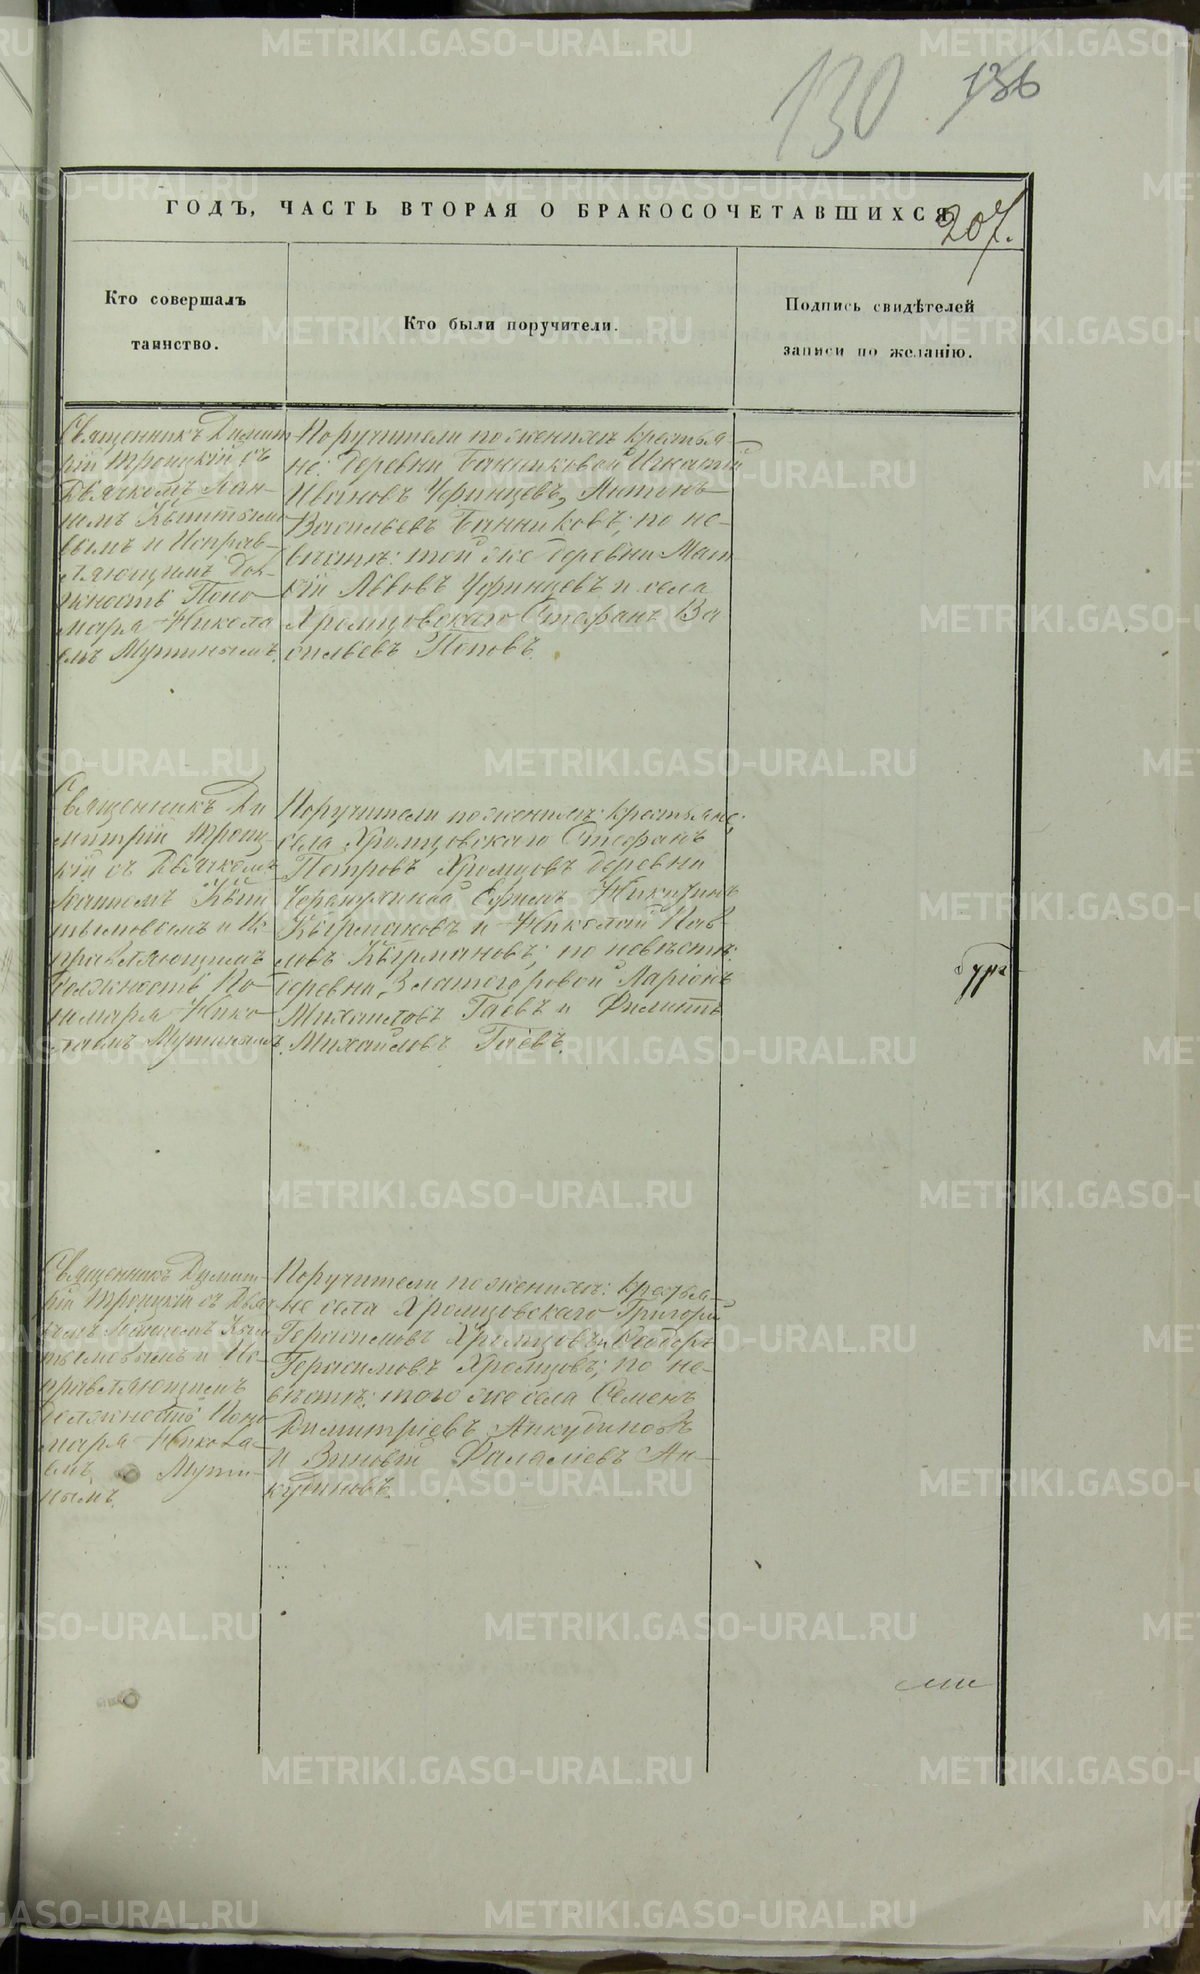 130 136
ГОДЪ, ЧАСТЬ ВТОРАЯ О БРАКОСОЧЕТАВШИХСЯ
207.
Кто совершалъ
таинство.
Кто были поручители.
Подпись свидѣтелей
записи по желанію.
Священникъ Димит
рій Троицкій съ
Дьячкомъ Іоан-
номъ
вымъ и Исправ-
ляющимъ Дол-
жность Поно-
маря Никола
емъ Мутинымъ.
Поручители по женихѣ крестья-
не: деревни Банниковой Игнатій
Ивановъ Уфинцевъ, Антонъ
Васильевъ Банниковъ; по не-
вѣстѣ: той же деревни Мат
Львовъ Уфинцевъ и села
Хромцовскаго Стефанъ Ва
сильевъ Поповъ.
Священникъ Ди
митрій Троиц-
кій съ Дьячкомъ
Іоанномъ
и Ис-
правляющимъ
Должность По-
номаря Нико-
лаемъ Мутинымъ.
Поручители по женихѣ: крестьяне:
села Хромцовскаго Стефанъ
Петровъ Хромцовъ деревни
Ефимъ
и Николай Пав
ловъ по невѣстѣ:
деревни Златогоровой Ларіонъ
Михаиловъ Гаевъ и Филиппъ
Михайловъ Гаевъ.
Священникъ Димит-
рій Троицкій съ Дьяч
комъ Іоанномъ
и Ис-
правляющимъ
должность Поно
маря Никола-
емъ Мути-
нымъ.
Поручители по женихѣ: крестья-
не села Хромцовскаго Григорій
Герасимовъ Хромцовъ и Ѳеодоръ
Герасимовъ Хромцовъ; по не-
вѣстѣ: того же села Семенъ
Димитріевъ Анкудиновъ
и Зиновій Фалалѣевъ Ан-
кудиновъ.
METRIKI.GASO-URAL.RU